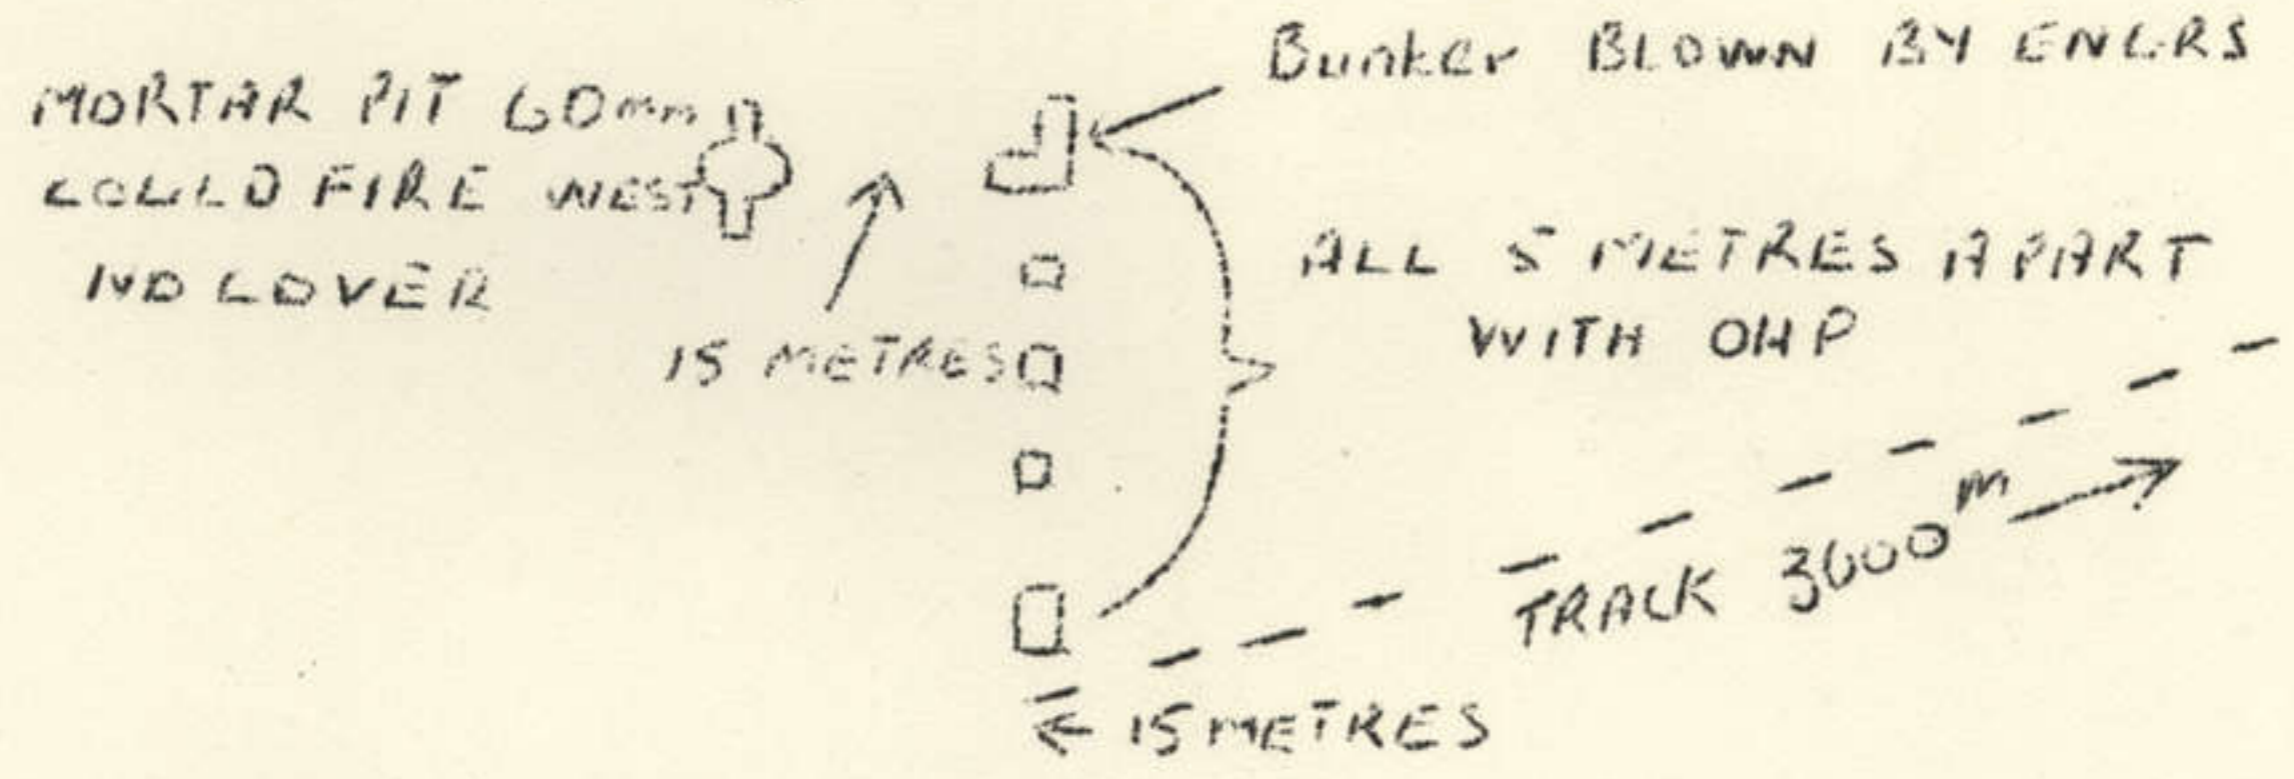 MORTAR PIT 60mm
COULD FIRE WEST
NO COVER
15 METRES
Bunker BLOWN BY ENGRS
ALL 5 METRES APART
WITH OHP
TRACK 3000m
15 METRES